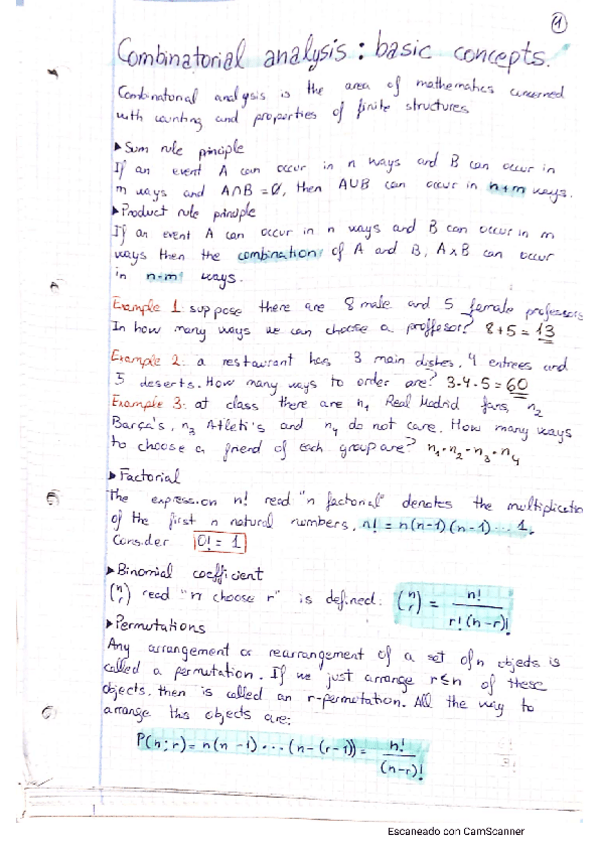 1
Combinatorial analysis: basic concepts.
Combinatorial analysis is the area of mathematics concerned
with counting and properties of finite structures
▸Sum rule principle
If an event A can occur in n ways and B can occur in
m ways and A∩B = ∅, then A∪B can occur in n+m ways.
▸Product rule principle
If an event A can occur in n ways and B can occur in m
ways then the combination of A and B, A×B can occur
in n·m ways.
Example 1: suppose there are 8 male and 5 female professors
In how many ways we can choose a proffosor? 8+5 = 13
Example 2: a restaurant has 3 main dishes, 4 entrees and
5 deserts. How many ways to order are? 3·4·5 = 60
Example 3: at class there are n₁ Real Madrid fans, n₂
Barça's, n₃ Atleti's and n₄ do not care. How many ways
to choose a friend of each group are? n₁·n₂·n₃·n₄
▸Factorial
The expression n! read "n factorial" denotes the multiplication
of the first n natural numbers, n! = n(n-1)(n-1)···1.
Consider 0! = 1
▸Binomial coefficient
(n r) read "n choose r" is defined: (n r) = n! / r!(n-r)!
▸Permutations
Any arrangement or rearrangement of a set of n objects is
called a permutation. If we just arrange r≤n of these
objects, then is called an r-permutation. All the way to
arrange this objects are:
P(n;r) = n(n-1)···(n-(r-1)) = n! / (n-r)!
Escaneado con CamScanner